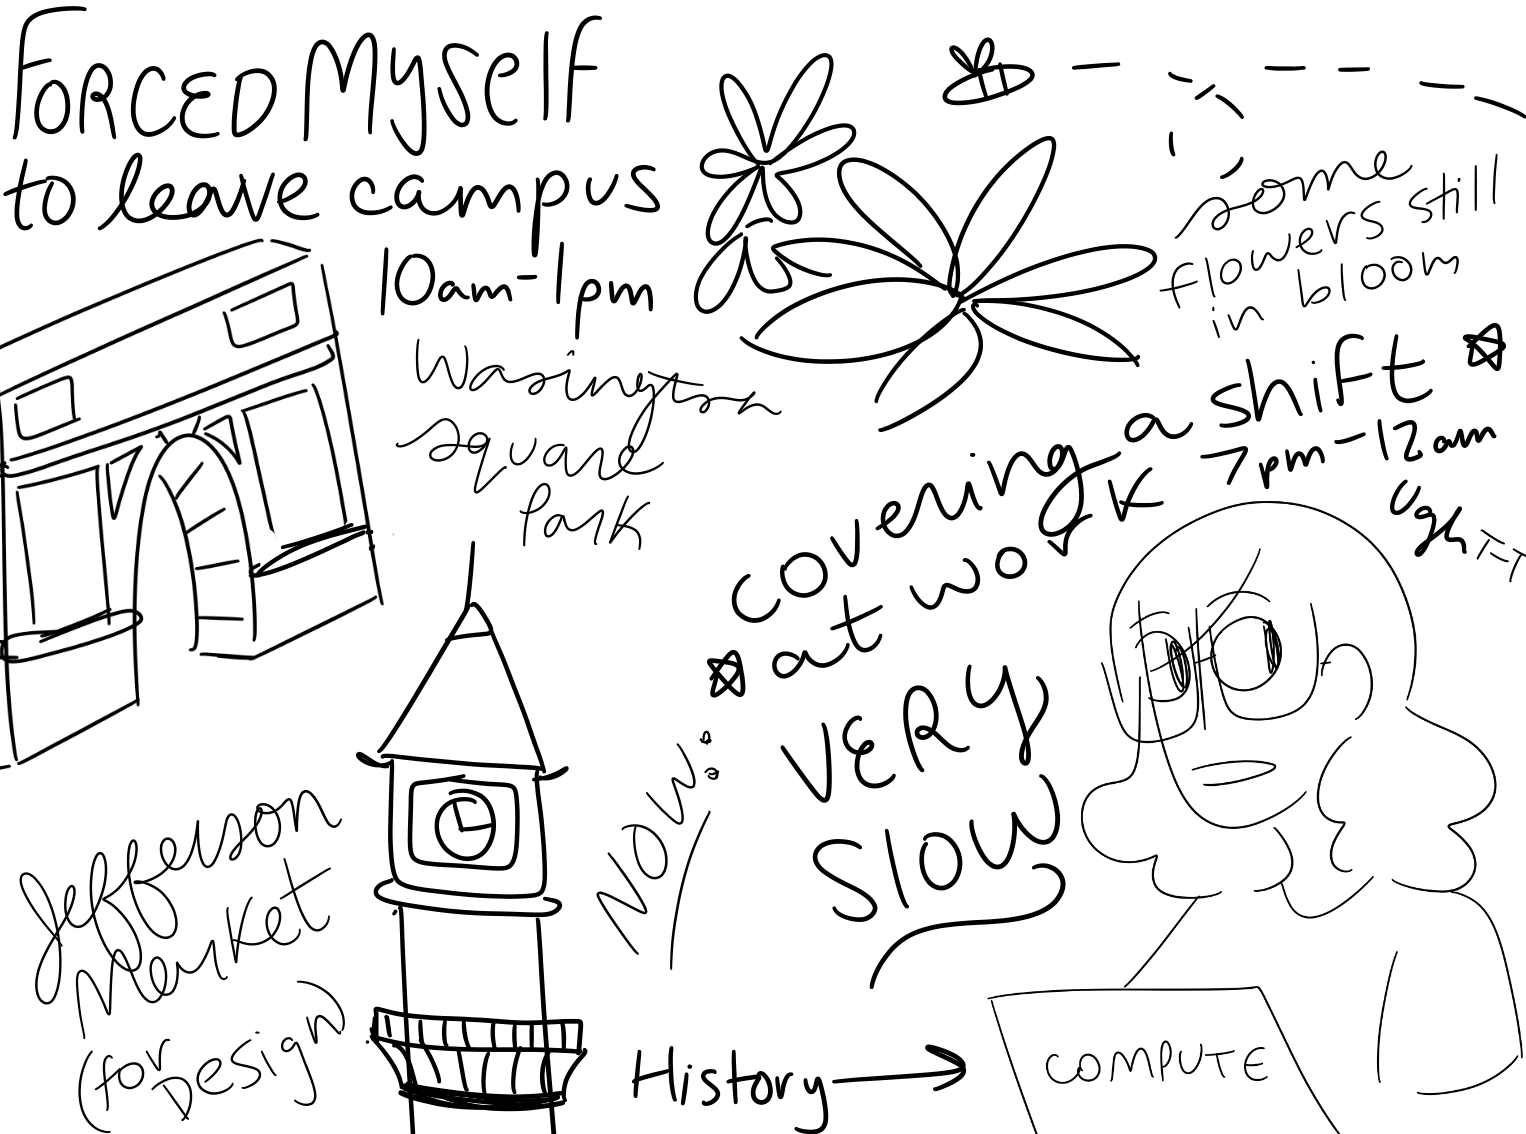 FORCED MYSElF
to leave campus
10am-1pm
Wasington
square
Park
some
flowers still
in bloom
covering a shift
at work 7pm-12am
ugh T-T
NOW:
VERY
SlOW
Jefferson
Market
(for
Design)
History
COMPUTE